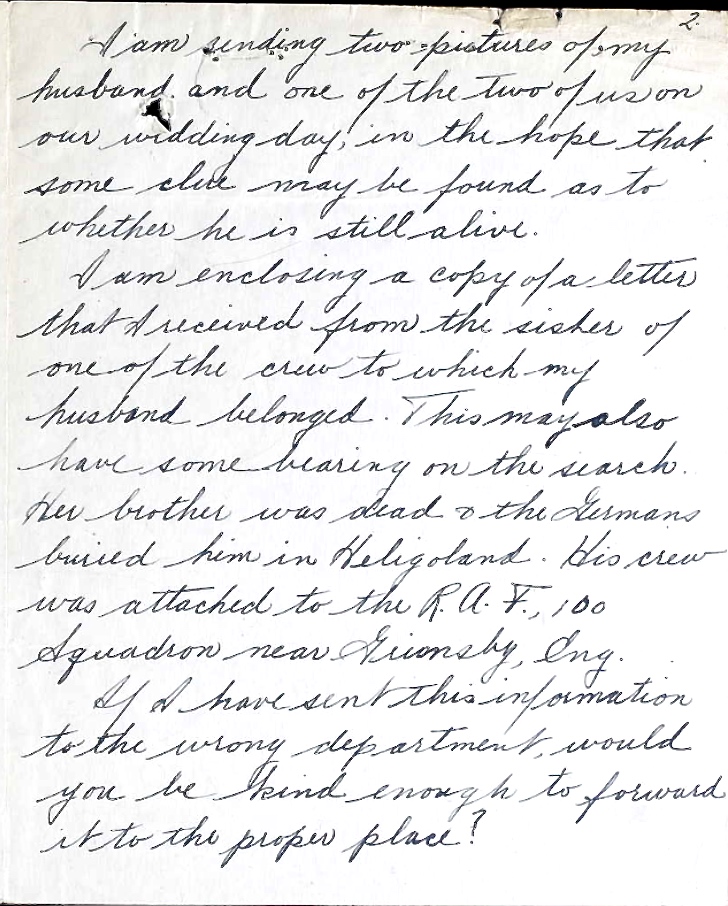 2.
I am sending two pictures of my
husband and one of the two of us on
our wedding day, in the hope that
some clue may be found as to
whether he is still alive.
I am enclosing a copy of a letter
that I received from the sister of
one of the crew to which my
husband belonged. This may also
have some bearing on the search.
Her brother was dead & the Germans
buried him in Heligoland. His crew
was attached to the R.A.F., 100
Squadron near Grimsby, Eng.
If I have sent this information
to the wrong department, would
you be kind enough to forward
it to the proper place?